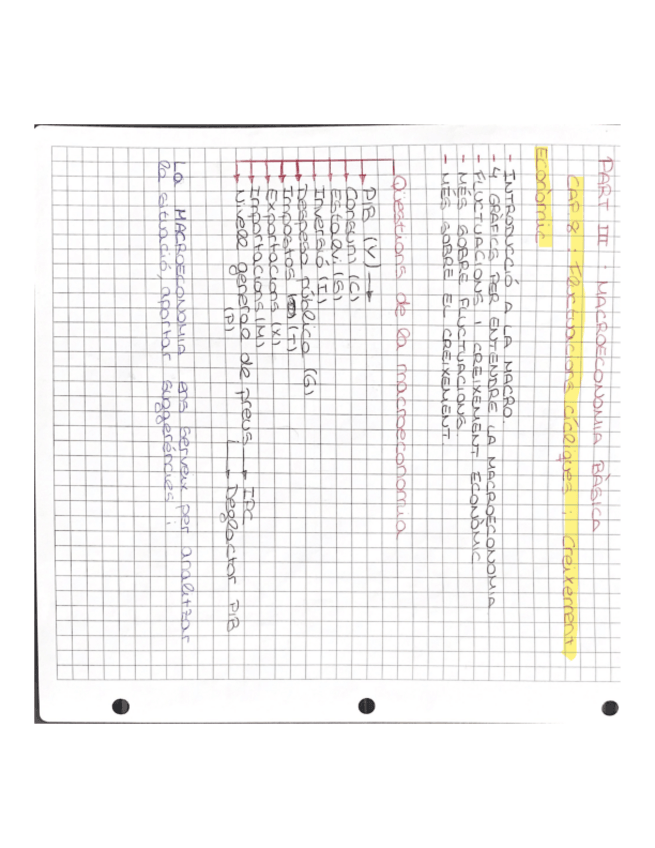 PART III : MACROECONOMIA BÀSICA
CAP. 8 : Fluctuacions cícliques i Creixement
Econòmic
- INTRODUCCIÓ A LA MACRO.
- 4 GRÀFICS PER ENTENDRE LA MACROECONOMIA
- FLUCTUACIONS I CREIXEMENT ECONÒMIC
- MÉS SOBRE FLUCTUACIONS
- MÉS SOBRE EL CREIXEMENT
Qüestions de la macroeconomia
PIB (Y) →
Consum (C)
Estalvi (S)
Inversió (I)
Despesa pública (G)
Impostos (T)
Exportacions (X)
Importacions (M)
Nivell general de preus → IPC
(P) → Deflactor PIB
La MACROECONOMIA ens serveix per analitzar
la situació, aportar suggerències i